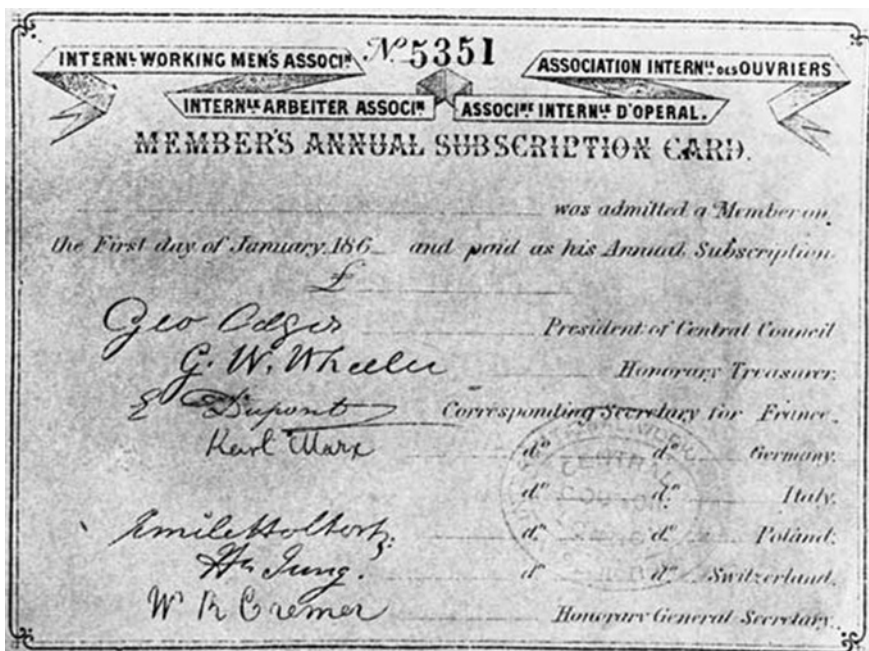 Nº 5351
INTERNL WORKING MEN'S ASSOCIN
ASSOCIATION INTERNLE DES OUVRIERS
INTERNLE ARBEITER ASSOCIN
ASSOCINE INTERNLE D'OPERAI.
MEMBER'S ANNUAL SUBSCRIPTION CARD.
was admitted a Member on
the First day of January 186_ and paid as his Annual Subscription
£
Geo Odger President of Central Council
G. W. Wheeler Honorary Treasurer.
E Dupont Corresponding Secretary for France.
Karl Marx do do Germany.
do do Italy.
Emile Holtorp. do do Poland.
Hn Jung. do do Switzerland.
W R Cremer Honorary General Secretary.
CENTRAL